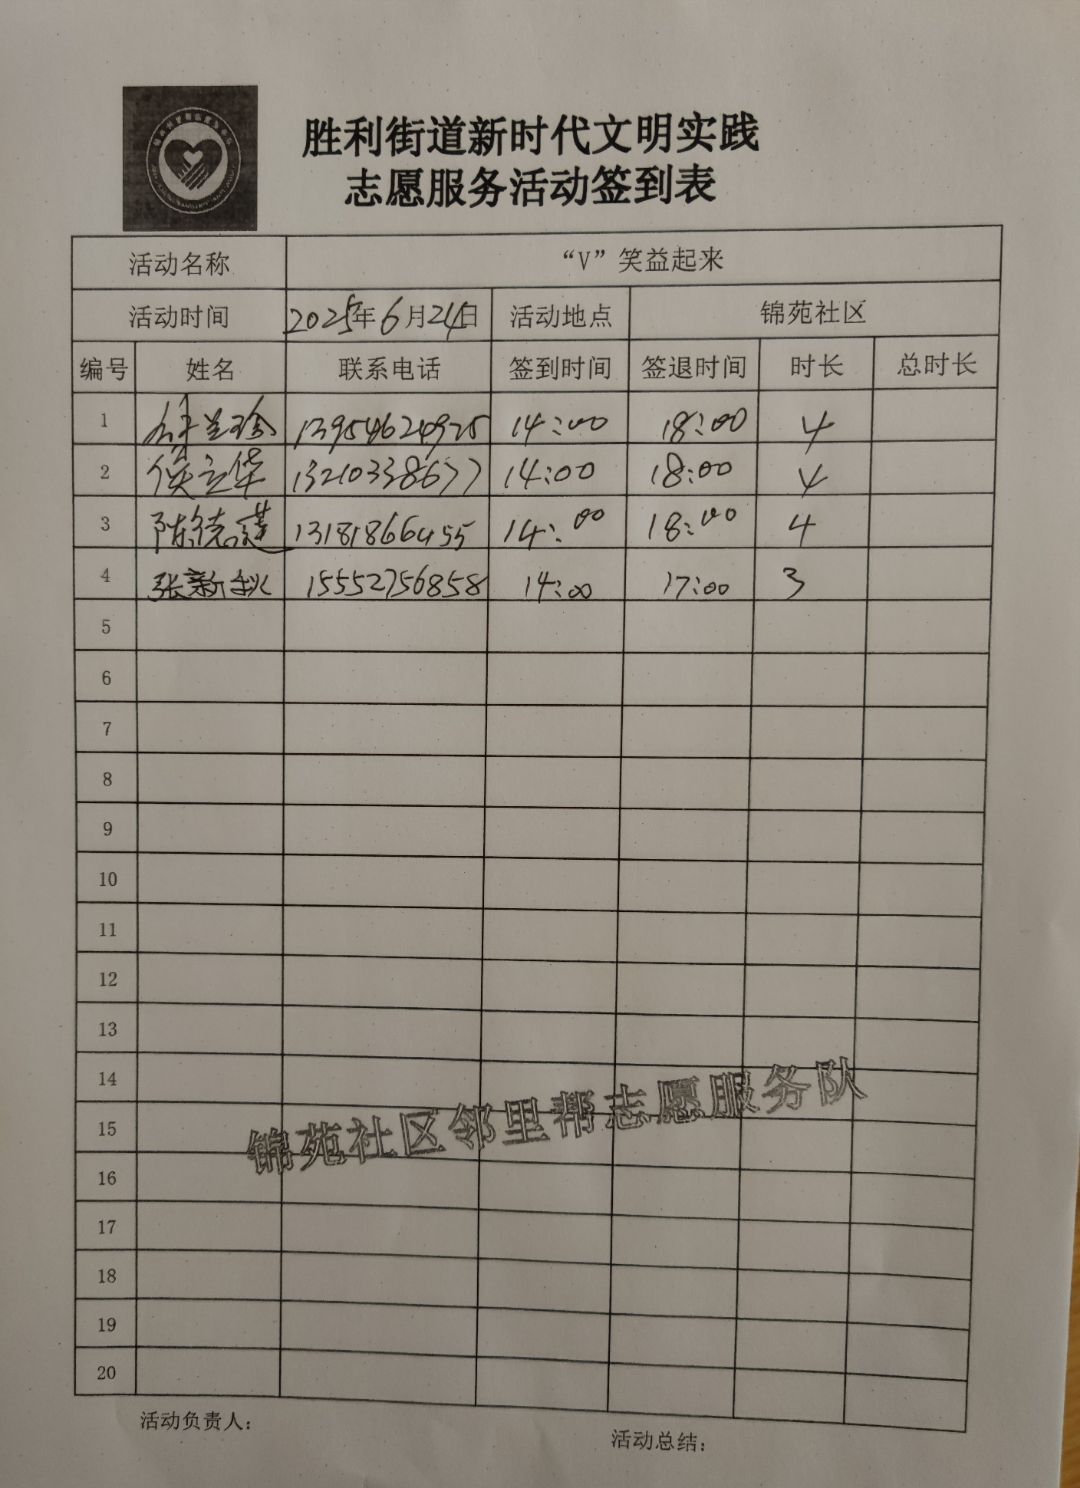 胜利街道新时代文明实践
志愿服务活动签到表
活动名称 “V”笑益起来
活动时间 2025年6月24日 活动地点 锦苑社区
编号 姓名 联系电话 签到时间 签退时间 时长 总时长
1 13954624925 14:00 18:00 4
2 侯立华 13210338677 14:00 18:00 4
3 陈德莲 13181866455 14:00 18:00 4
4 张新秋 15552756858 14:00 17:00 3
5
6
7
8
9
10
11
12
13
14
15
16
17
18
19
20
锦苑社区邻里帮志愿服务队
活动负责人：
活动总结：